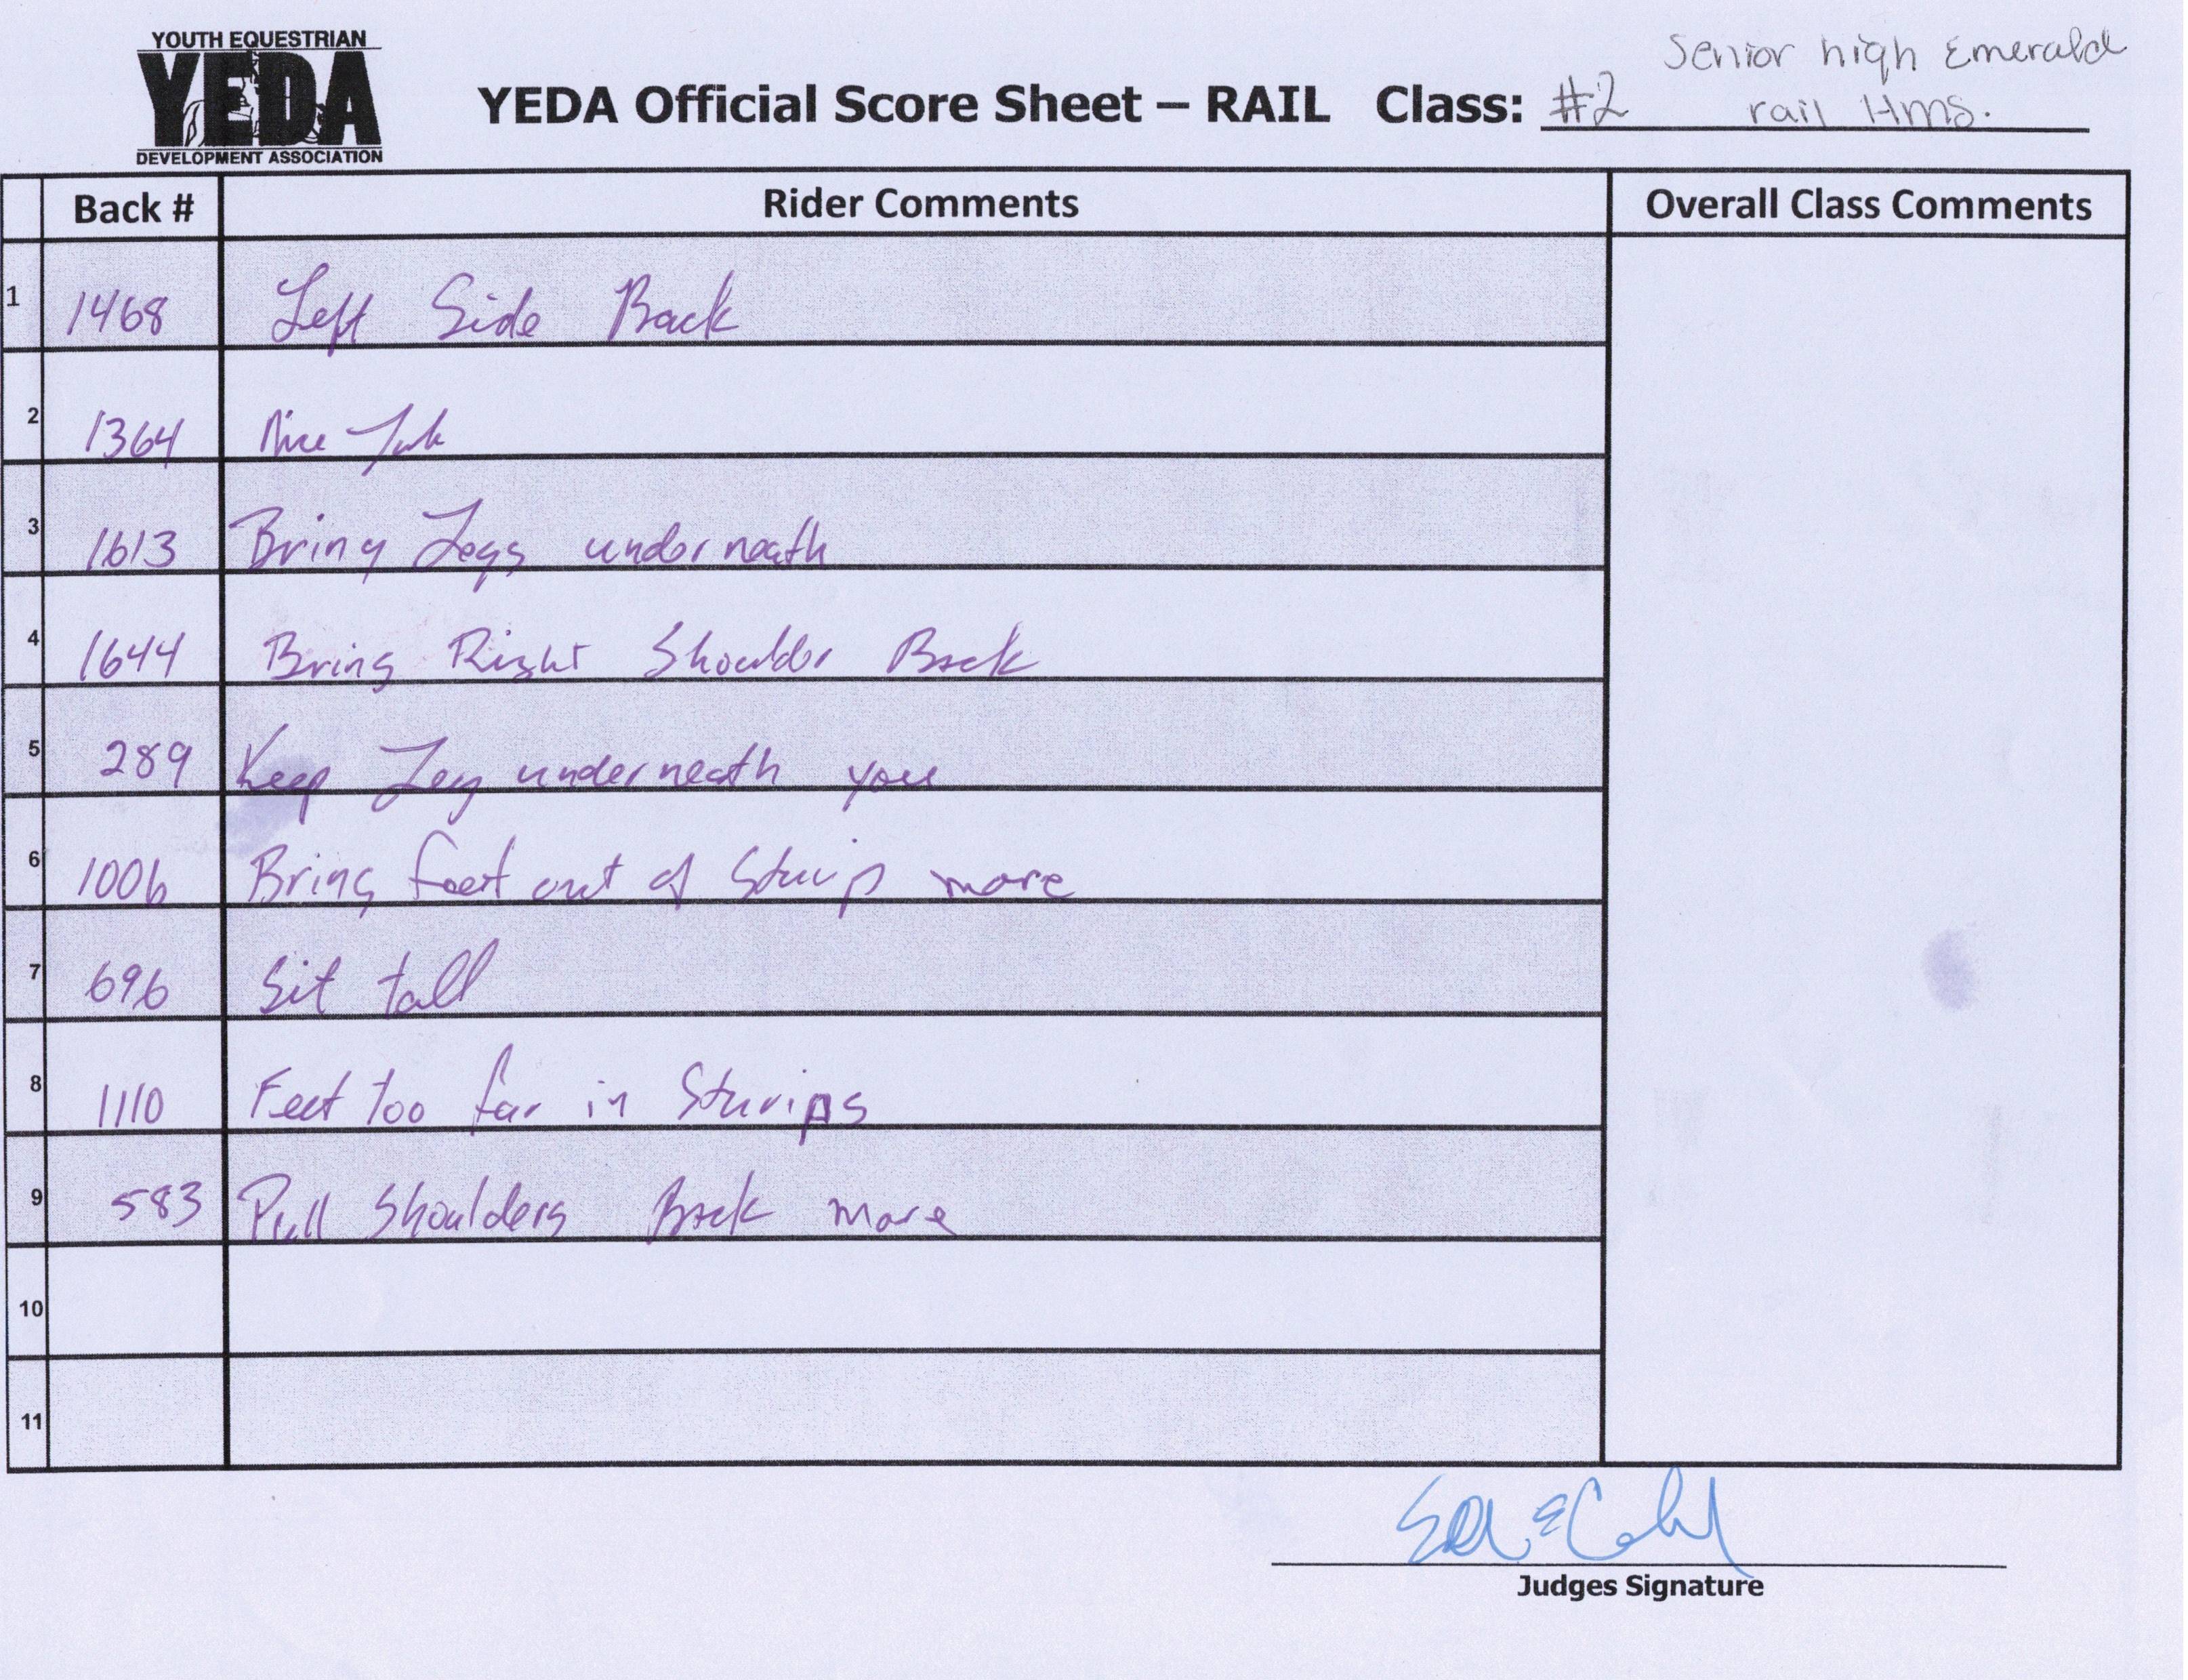 YOUTH EQUESTRIAN
YEDA
DEVELOPMENT ASSOCIATION
Senior high Emerald
YEDA Official Score Sheet – RAIL Class: #2 rail Hms.
Back # Rider Comments Overall Class Comments
1 1468 Left Side Back
2 1364 Nice
3 1613 Bring Legs underneath
4 1644 Bring Right Shoulder Back
5 289 Keep Leg underneath you
6 1006 Bring feet out of Sturip more
7 696 Sit tall
8 1110 Feet Too far in Sturips
9 583 Pull Shoulders Back more
10
11
Judges Signature